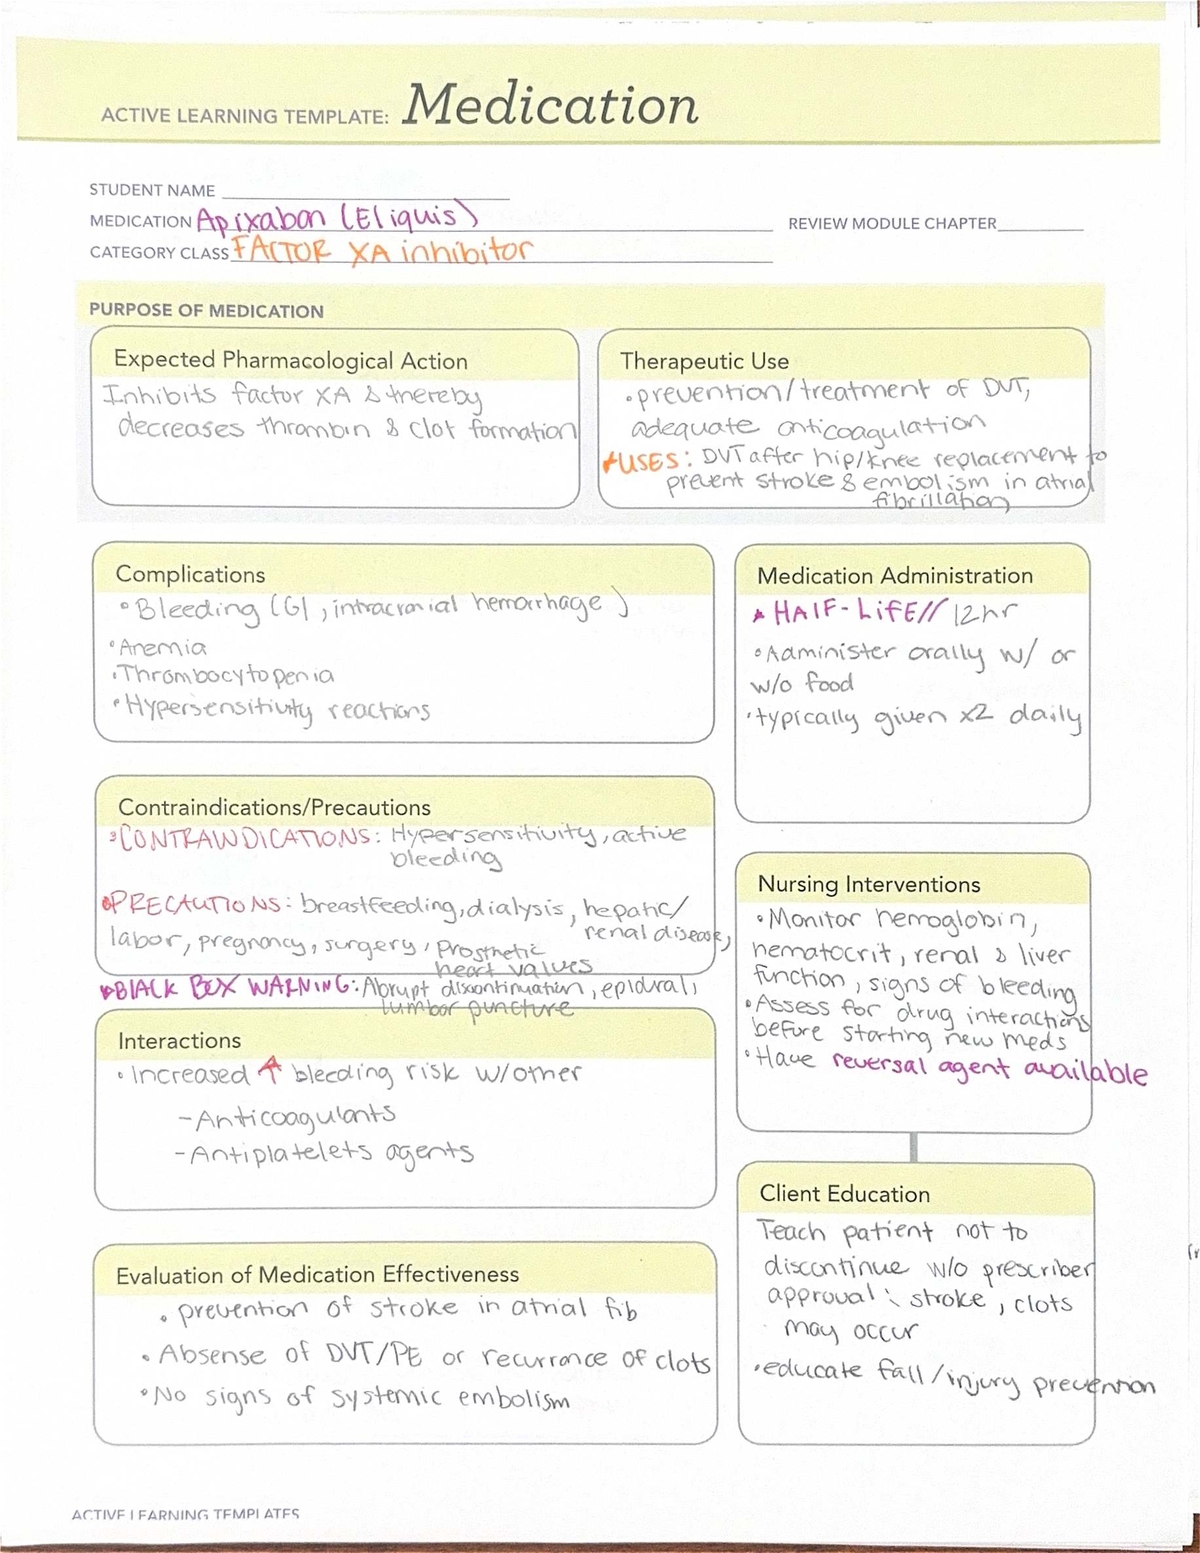 ACTIVE LEARNING TEMPLATE: Medication
STUDENT NAME
MEDICATION Apixabon (Eliquis)
REVIEW MODULE CHAPTER
CATEGORY CLASS FACTOR XA inhibitor
PURPOSE OF MEDICATION
Expected Pharmacological Action
Inhibits factor XA & thereby
decreases thrombin & clot formation
Therapeutic Use
• prevention/treatment of DVT,
adequate anticoagulation
★USES: DVT after hip/knee replacement to
prevent stroke & embolism in atrial
fibrillation
Complications
• Bleeding (GI, intracranial hemorrhage)
• Anemia
• Thrombocytopenia
• Hypersensitivity reactions
Medication Administration
★ HALF-LiFE// 12hr
• Administer orally w/ or
w/o food
• typically given x2 daily
Contraindications/Precautions
• CONTRAINDICATIONS: Hypersensitivity, active
bleeding
• PRECAUTIONS: breastfeeding, dialysis, hepatic/
renal disease,
labor, pregnancy, surgery, prosthetic
heart valves
★BlACK BOX WARNING: Abrupt discontinuation, epidural,
lumbar puncture
Nursing Interventions
• Monitor hemoglobin,
hematocrit, renal & liver
function, signs of bleeding
• Assess for drug interactions
before starting new meds
• Have reversal agent available
Interactions
• Increased ↑ bleeding risk w/other
- Anticoagulants
- Antiplatelets agents
Client Education
Teach patient not to
discontinue w/o prescriber
approval: stroke, clots
may occur
• educate fall/injury prevention
Evaluation of Medication Effectiveness
• prevention of stroke in atrial fib
• Absense of DVT/PE or recurrance of clots
• No signs of systemic embolism
ACTIVE LEARNING TEMPLATES